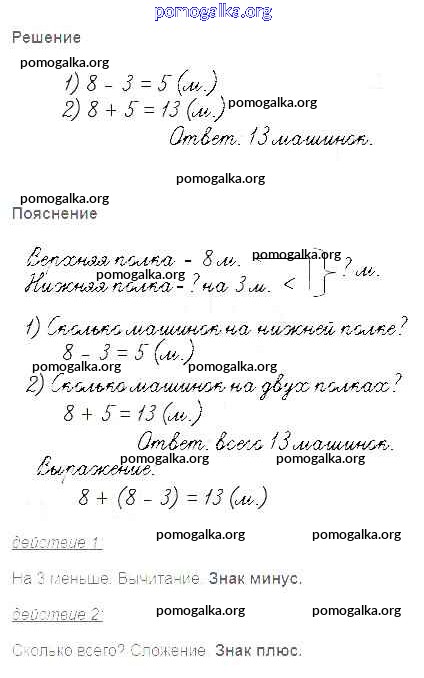 pomogalka.org
Решение
pomogalka.org
1) 8 - 3 = 5 (м.)
2) 8 + 5 = 13 (м.) pomogalka.org
Ответ. 13 машинок.
pomogalka.org
pomogalka.org
Пояснение
Верхняя полка - 8 м. pomogalka.org
Нижняя полка - ? на 3 м. < } ? м.
pomogalka.org
1) Сколько машинок на нижней полке?
8 - 3 = 5 (м.)
pomogalka.org pomogalka.org
2) Сколько машинок на двух полках?
8 + 5 = 13 (м.)
Ответ. всего 13 машинок.
pomogalka.org pomogalka.org
Выражение.
8 + (8 - 3) = 13 (м.)
действие 1: pomogalka.org pomogalka.org
На 3 меньше. Вычитание. Знак минус.
действие 2: pomogalka.org pomogalka.org
Сколько всего? Сложение. Знак плюс.